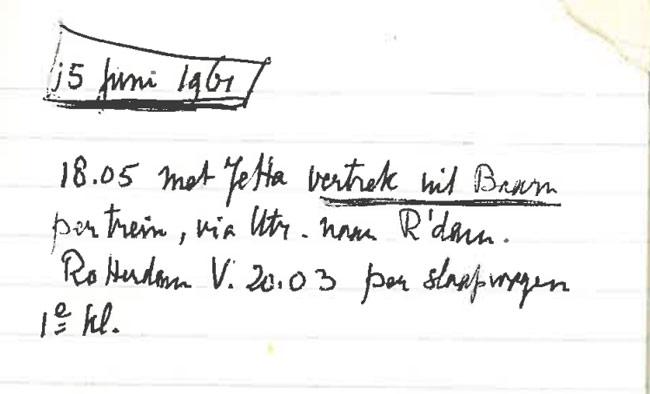 15 Juni 1961
18.05 met Jetta vertrek uit Baarn
per trein, via Utr. naar R'dam.
Rotterdam V. 20.03 per slaapwagen
1e kl.